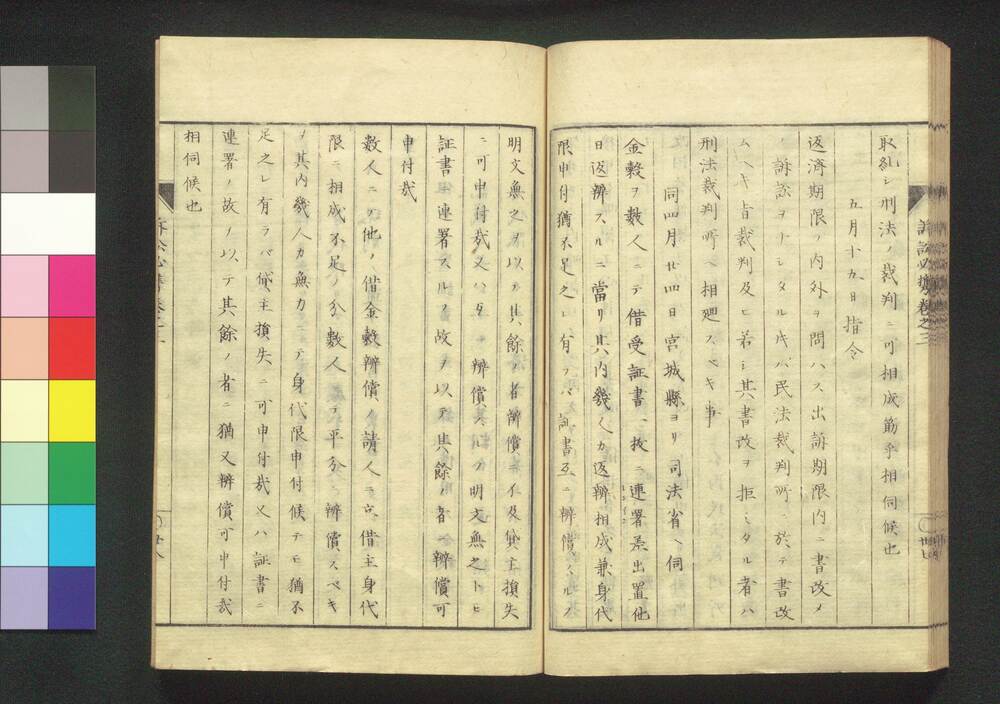 取糺シ刑法ノ裁判ニ可相成筋乎相伺候也
五月十九日指令
返済期限ノ内外ヲ問ハス出訴期限内ニ書改メ
ノ訴訟ヲ シタル片ハ民法裁判所ニ於テ書改
ムヘキ旨裁判及ヒ若シ其書改ヲ拒ミタル者ハ
刑法裁判所ヘ相廻スヘキ事
同四月廿四日宮城縣ヨリ司法省ヘ伺
金穀ヲ數人ニテ借受証書一枚ニ連署差出置他
日返辨スルニ當リ其内幾人カ返辨相成兼身代
限申付猶不足之レ有ラハ証書互ニ辨償スルノ
明文無之ヲ以テ其餘ノ者辨償ニ不及貸主損失
ニ可申付哉又ハ互ニ辨償スルノ明文無之トモ
証書ニ連署スルヲ故ヲ以テ其餘ノ者ヘ辨償可
申付哉
數人ニテ他ノ借金穀辨償ノ請人ニ立借主身代
限ニ相成不足ノ分數人ニテ平分ニ辨償スヘキ
ヲ其内幾人カ無力ニテ身代限申付候テモ猶不
足之レ有ラバ貸主損失ニ可申付哉又ハ証書ニ
連署ノ故ノ以テ其餘ノ者ニ猶又辨償可申付哉
相伺候也
訴訟必携巻之二
廿七
廿八